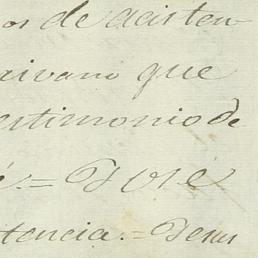 os de acisten
rivano que
estimonio de
é.= José
tencia.= Jesus